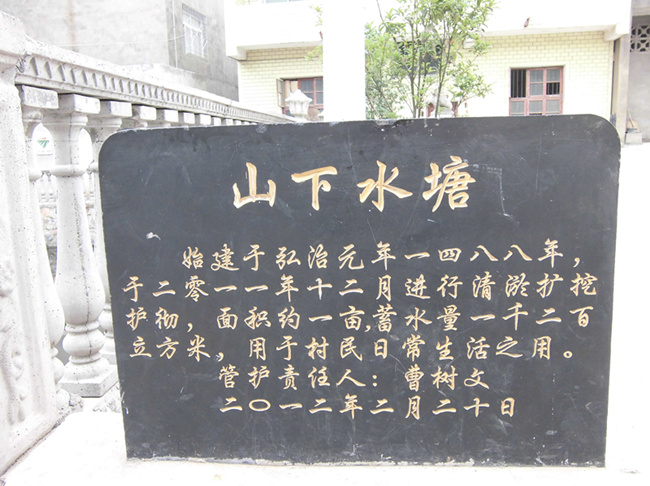 山下水塘
始建于弘治元年一四八八年，
于二零一一年十二月进行清淤扩挖
护彻，面积约一亩，蓄水量一千二百
立方米，用于村民日常生活之用。
管护责任人：曹树文
二〇一二年二月二十日